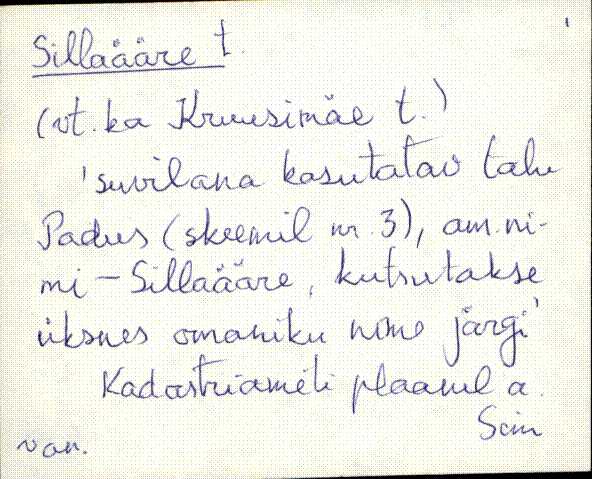 Sillaääre t.
(vt. ka Kruusimäe t.)
'suvilana kasutatav talu
Padus (skeemil nr. 3), am. ni-
mi – Sillaääre, kutsutakse
üksnes omaniku nime järgi'
Kadastriameti plaanil a.